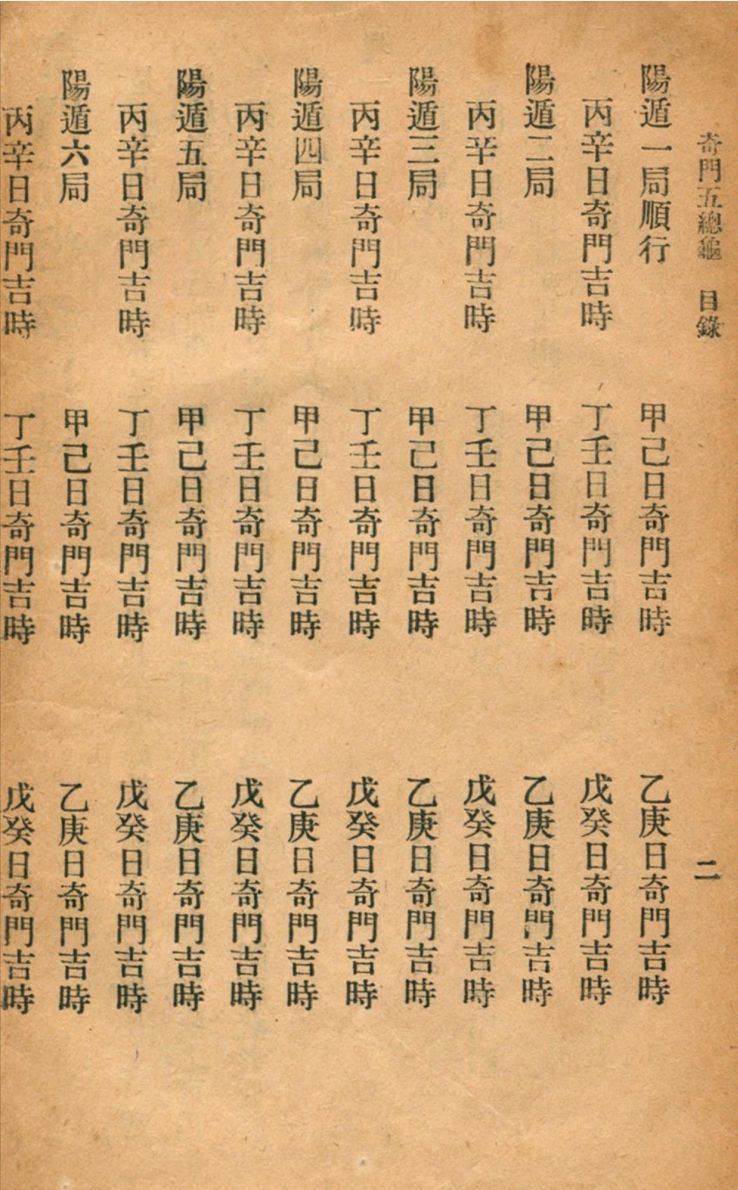 奇門五總龜　目錄　二
陽遁一局順行　甲己日奇門吉時　乙庚日奇門吉時
丙辛日奇門吉時　丁壬日奇門吉時　戊癸日奇門吉時
陽遁二局　甲己日奇門吉時　乙庚日奇門吉時
丙辛日奇門吉時　丁壬日奇門吉時　戊癸日奇門吉時
陽遁三局　甲己日奇門吉時　乙庚日奇門吉時
丙辛日奇門吉時　丁壬日奇門吉時　戊癸日奇門吉時
陽遁四局　甲己日奇門吉時　乙庚日奇門吉時
丙辛日奇門吉時　丁壬日奇門吉時　戊癸日奇門吉時
陽遁五局　甲己日奇門吉時　乙庚日奇門吉時
丙辛日奇門吉時　丁壬日奇門吉時　戊癸日奇門吉時
陽遁六局　甲己日奇門吉時　乙庚日奇門吉時
丙辛日奇門吉時　丁壬日奇門吉時　戊癸日奇門吉時